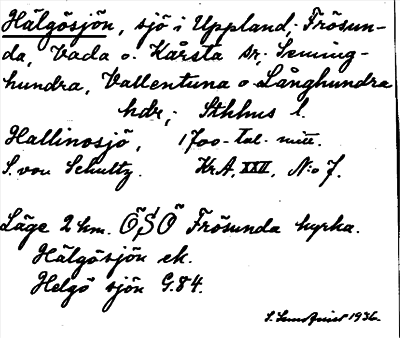 Hälgösjön, sjö i Uppland; Frösun-
da, Vada o. Kårsta sr; Seming-
hundra, Vallentuna o Långhundra
hdr; Sthlms l.
Hallinosjö, 1700-tal. mitt.
S. von Schultz. KrA, XXII, No 7.
Läge 2 km. ÖSÖ Frösunda kyrka.
Hälgösjön ek.
Helgö sjön G.84.
S. Lundquist 1936.